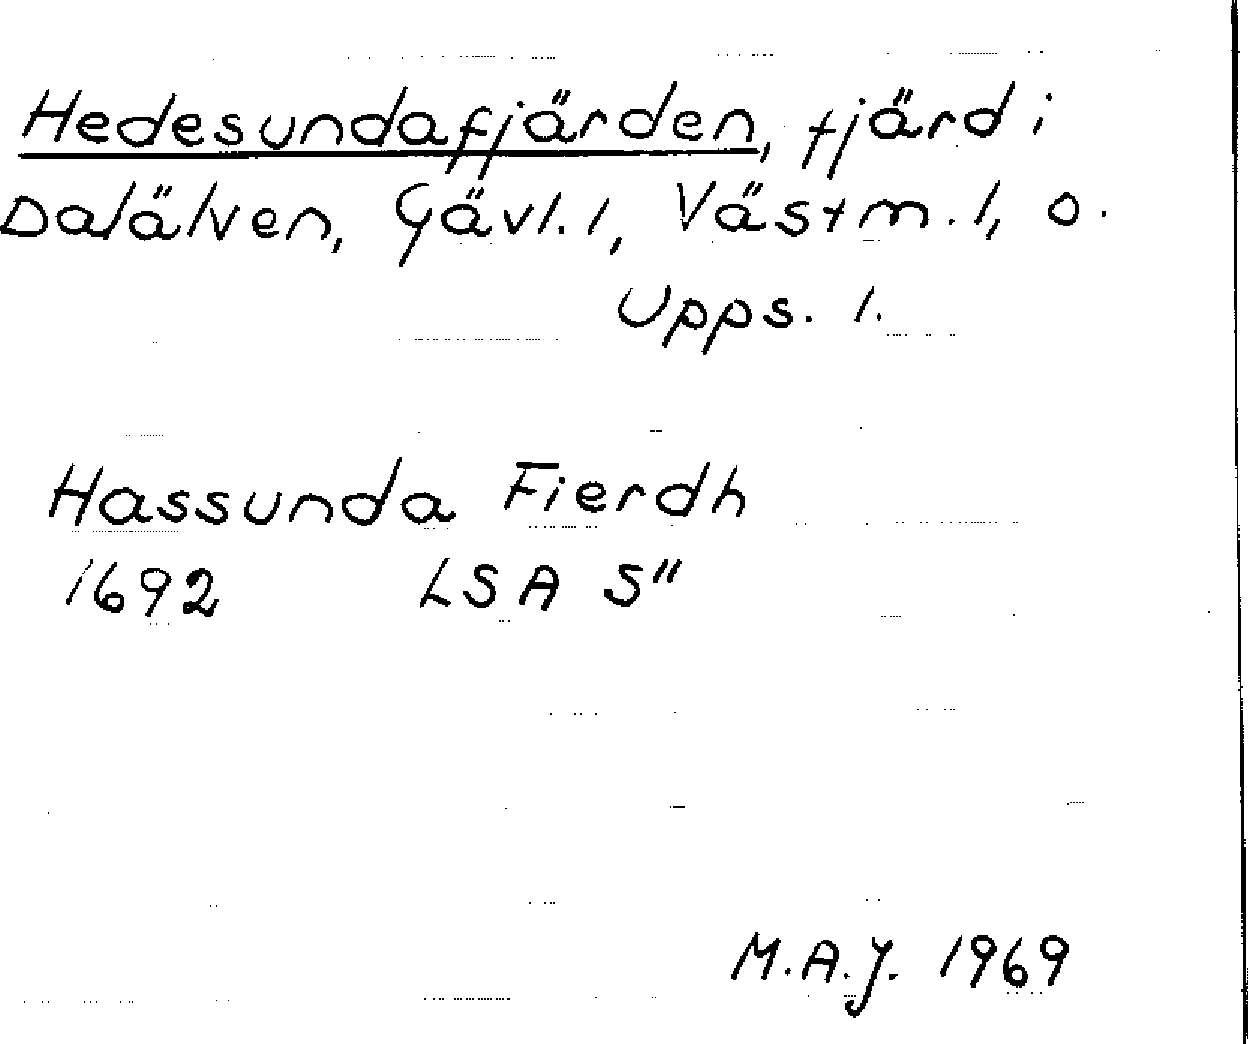 Hedesundafjärden, fjärd i
Dalälven, Gävl. l, Västm. l, o.
Upps. l.
Hassunda Fierdh
1692 LSA S"
M.A.J. 1969